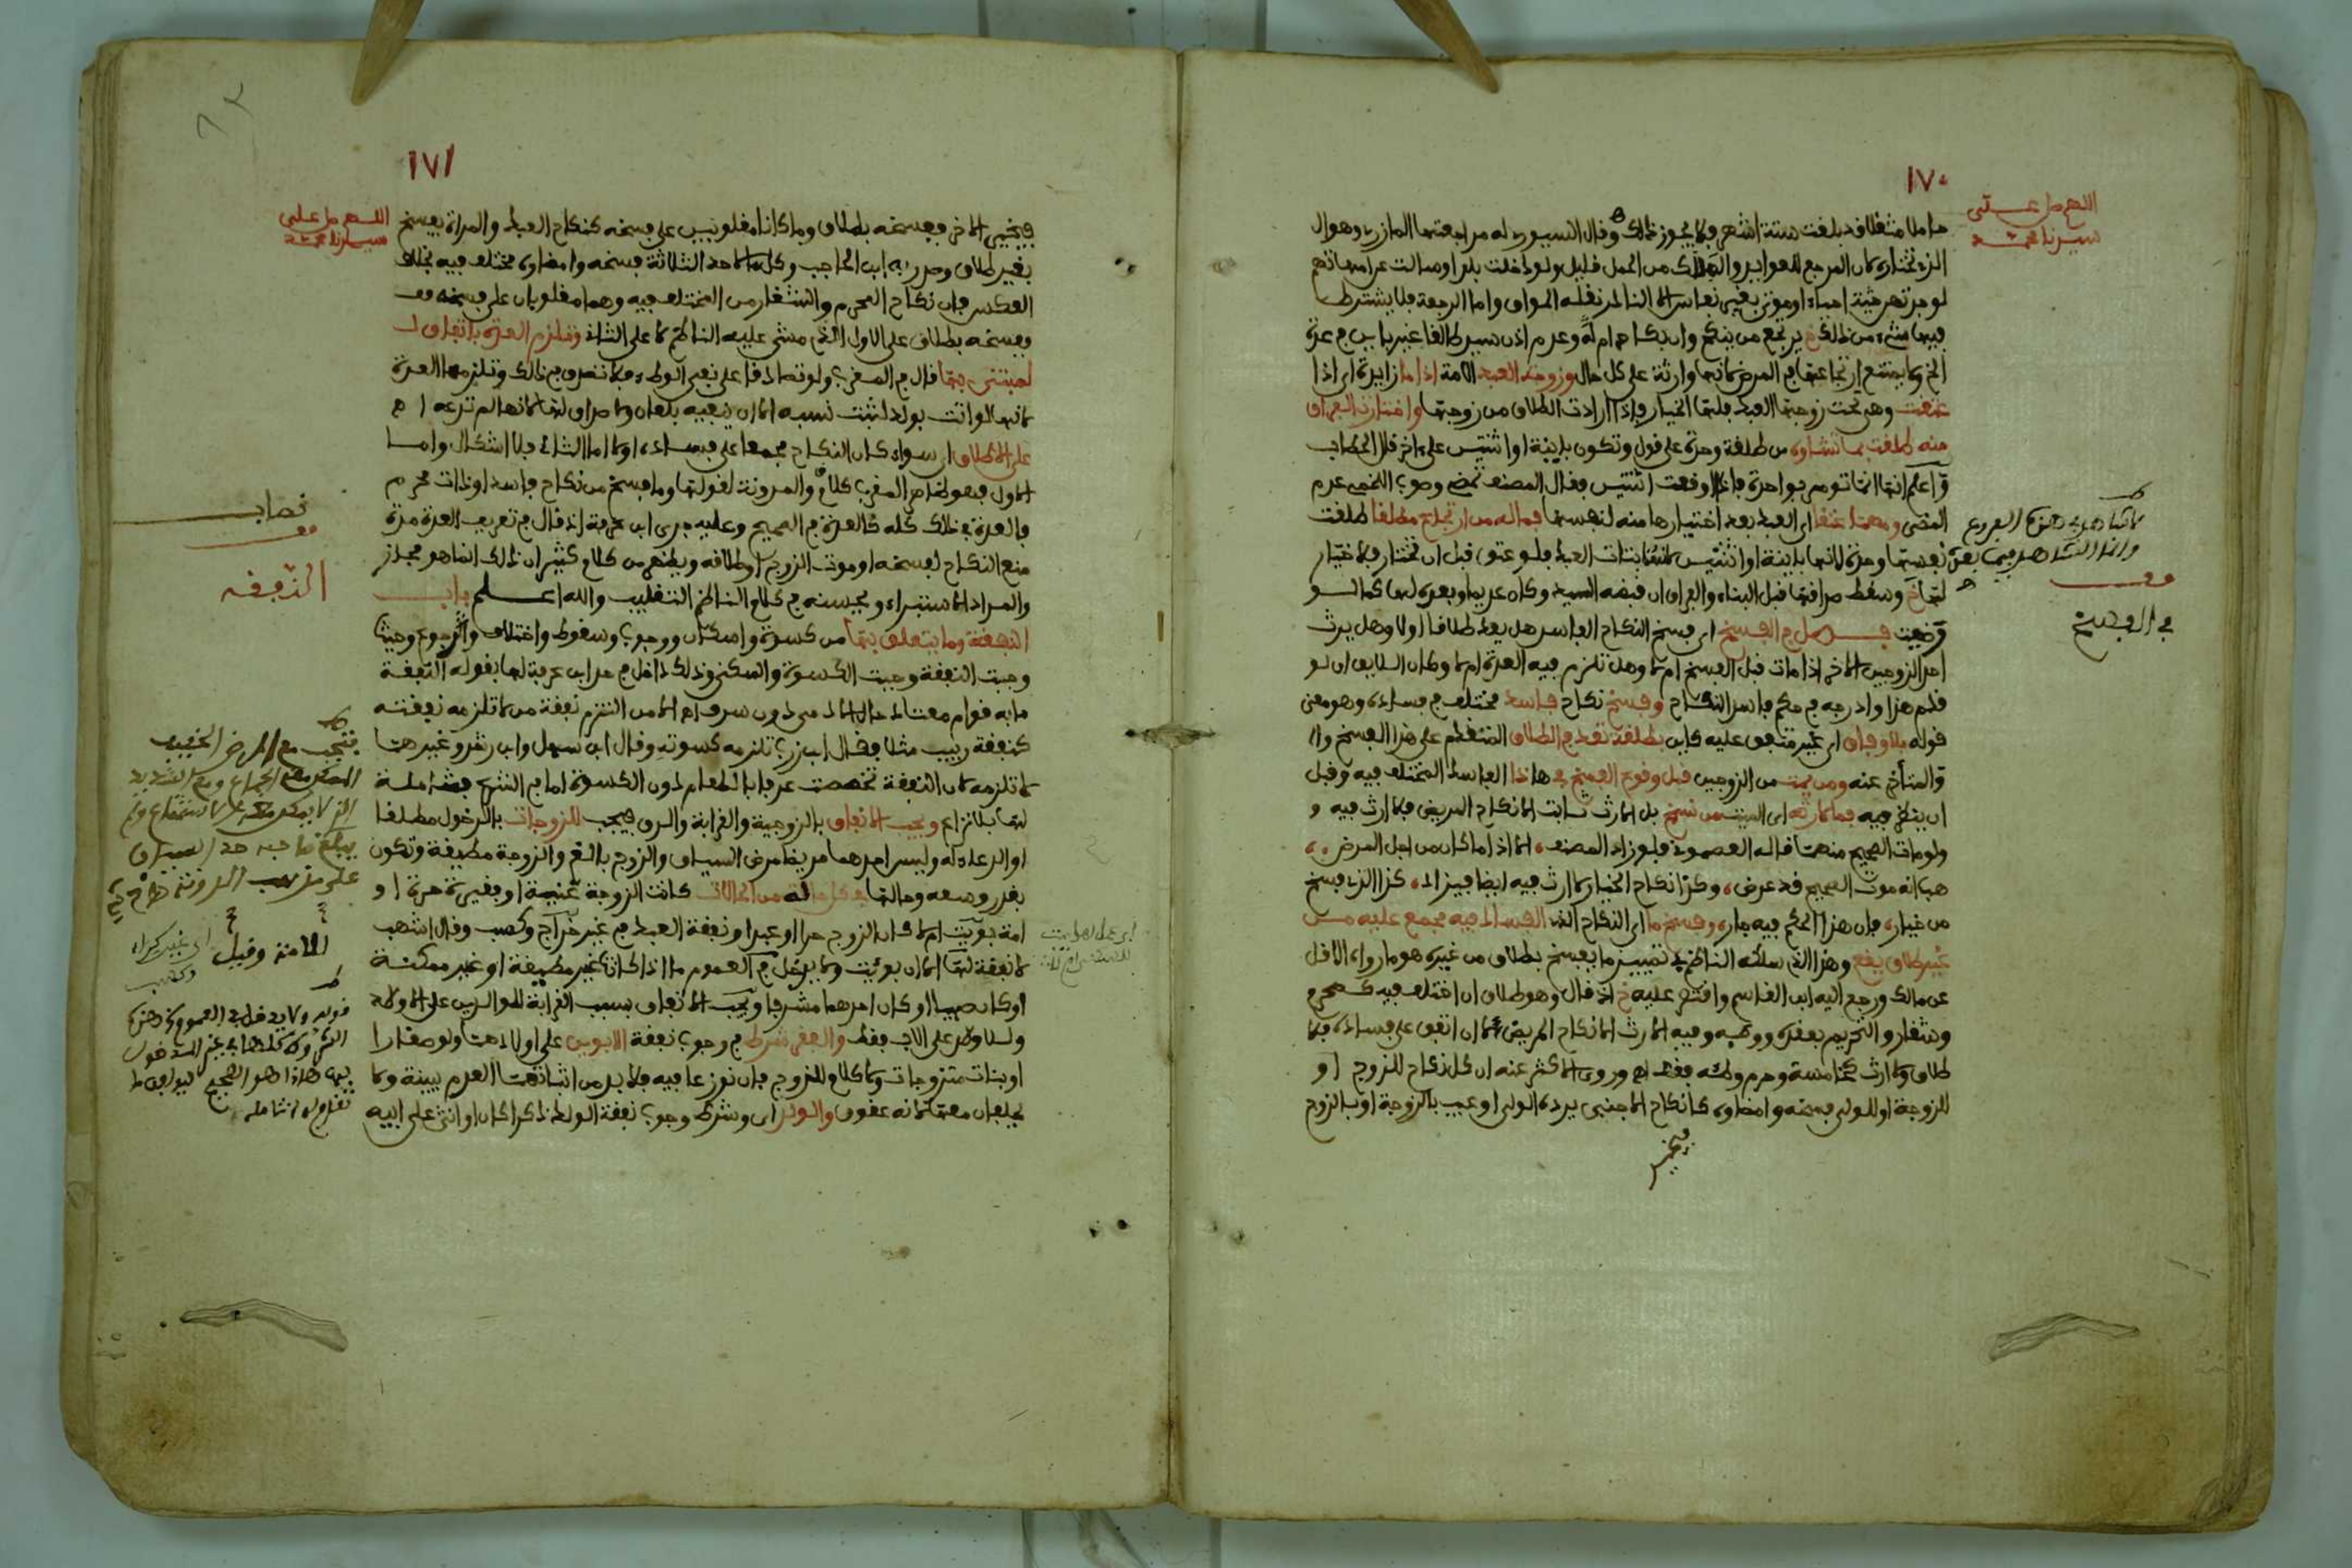 ١٧٠
اللهم صل على
سيدنا محمد
حاملا مثقلا قد بلغت ستة اشهر فلا يجوز ذلك وقال السيوري له مراجعتها المازري وهو ال
الذي نختاره لان المرجع للعوايد والهلاك من الحمل قليل ولو دخلت بلدا وسالت عن امهاتهم
لوجدتهن حية احياء او موتى بغير نفاس الا النادر نقله المواق واما الرجعة فلا يشترط
فيها شيء من ذلك خ يرتجع من ينكح وان بكاحرام له وعدم اذن سيد طالقا غير باين في عدة
الخ ولا يمتنع ارتجاعها في المرض لانها وارثة على كل حال وزوجة العبد الامة اذا ما زايدة اي اذا
عتقت وهي تحت زوجها العبد فلها الخيار فاذا ارادت الطلاق من زوجها واختارت الفراق
منه طلقت بما تشاؤه من طلقة وحدة على قول وتكون باينة او اثنتين على اخر قال الحطاب
واعلم انها انما تومر بواحدة فاذا اوقعت اثنتين فقال المصنف تمضي وصوب اللخمي عدم
المضي ومهما عتقا اي العبد بعد اختيارها منه لنفسها فما له من ارتجاع مطلقا طلقت
نفسها وحدة لانها باينة او اثنتين لانها بتات العبد فلو عتق قبل ان تختار فلا خيار
لها خ وسقط صداقها قبل البناء والفراق ان قبضه السيد وكان عديما وبعده لها كما لو
رضيت فصل في الفسخ اي فسخ النكاح الفاسد هل يعد طلاقا اولا وهل يرث
احد الزوجين الاخر اذا مات قبل الفسخ ام لا وهل تلزم فيه العدة ام لا وكان اللايق ان لو
قدم هذا وادرجه في حكم فاسد النكاح وفسخ نكاح فاسد مختلف في فساده وهو معنى
قوله بلا وفاق اي غير متفق عليه كاين بطلقة تعد في الطلاق المتقدم على هذا الفسخ وال
والمتأخر عنه ومن يمت من الزوجين قبل وقوع الفسخ في هاذا الفاسد المختلف فيه وقبل
ان ينظر فيه فما لارثه اي الميت من نسخ بل الارث ثابت الا نكاح المريض فلا ارث فيه و
ولو مات الصحيح منهما قاله العصموني فلو زاد المصنف الا اذا ما كان من اجل المرض
هبانه موت الصحيح قد عرض وكذا نكاح الخيار لا ارث فيه ايضا فيزاد كذا الذي فسخ
من خيار فان هذا الحكم فيه جار وفسخ ما اي النكاح الذي الفساد فيه مجمع عليه من
غير طلاق يقع وهذا الذي سلكه الناظم في تمييز ما يفسخ بطلاق من غيره هو ما رواه الاقل
عن مالك ورجع اليه ابن القاسم واقتصر عليه خ اذ قال وهو طلاق ان اختلف فيه كمحرم
وشغار والتحريم بعقده ووطئه وفيه الارث الا نكاح المريض لا ان اتفق على فساده فلا
طلاق ولا ارث كخامسة وحرم وطئه فقط اه وروى الاكثر عنه ان كل نكاح للزوج او
للزوجة او للولي فسخه وامضاؤه كانكاح الاجنبي يرده الولي او عيب بالزوجة او بالزوج
فيخير
لا شاهد في هذه الفروع
وانما الشاهد فيما بعد
قف
في الفسخ
١٧١
اللهم صل على
سيدنا محمد
فيخير الاخر ففسخه بطلاق وما كانا مغلوبين على فسخه كنكاح العبد والمراة يفسخ
بغير طلاق وصدر به ابن الحاجب وكل ما لاحد الثلاثة فسخه وامضاؤه مختلف فيه بخلاف
العكس فان نكاح المحرم والشغار من المختلف فيه وهما مغلوبان على فسخه فف
ففسخه بطلاق على الاول الذي مشى عليه الناظم لا على الثاني وتلزم العدة باتفاق ل
لمبتنى بها قال في المغرب ولو تصادقا على نفي الوطء فلا تصدق في ذلك وتلزمها العدة
لانها لو اتت بولد لثبت نسبه الا ان ينفيه بلعان ولا صداق لها لانها لم تدعه اه
على الاطلاق اي سواء كان النكاح مجمعا على فساده اولا اما الثاني فلا اشكال واما
الاول فهو ظاهر المغرب كلاع والمدونة لقولها وما فسخ من نكاح فاسد او ذات محرم
فالعدة في ذلك كله كالعدة في الصحيح وعليه جرى ابن عرفة اذ قال في تعريف العدة مدة
منع النكاح لفسخه او موت الزوج او طلاقه ويظهر من كلاع كثير ان ذلك انما هو مجاز
والمراد الاستبراء ويحسنه في كلاع الناظم التغليب والله اعلم باب
النفقة وما يتعلق بها من كسوة واسكان ووجوب وسقوط واختلاف والرجوع وحيثما
وجبت النفقة وجبت الكسوة والسكنى وذلك داخل في حد ابن عرفة لها بقوله النفقة
ما به قوام معتاد حال الادمي دون سرف اه الا من التزم نفقة من لا تلزمه نفقته
كنفقة ربيب مثلا فقال ابن زرب تلزمه كسوته وقال ابن سهل وابن رشد وغيرهما
لا تلزمه لان النفقة تخصصت عرفا بالطعام دون الكسوة اما في الشرع فشاملة
لها بلا نزاع ويجب الانفاق بالزوجية والقرابة والرق فيجب للزوجات بالدخول مطلقا
او الدعاء له وليس احدهما مريضا مرض السياق والزوج بالغ والزوجة مطيقة وتكون
بقدر وسعه وحالها في كل حالة من الحالات كانت الزوجة غنية او فقيرة حرة او
امة بويت ام لا كان الزوج حرا او عبدا ونفقة العبد في غير خراج وكسب وقال اشهب
لا نفقة لها الا ان بوئت ولا يدخل في العموم ما اذا كانا غير مطيقة او غير ممكنة
او كان صبيا او كان احدهما مشرفا ويجب الانفاق بسبب القرابة للوالدين على الاولاد
وللاولاد على الاب فقط والفقر شرط في وجوب نفقة الابوين على اولادهما ولو صغارا
او بنات متزوجات ولا كلاع للزوج فان نوزعا فيه فلا بد من اثباتهما العدم ببينة ولا
يحلفان معها لانه عقوق والولد اي وشرط وجوب نفقة الولد ذكرا كان او انثى على ابيه
نصاب
قف
النفقة
فتجب مع المرض الخفيف
على مذهب المدونة
الامة وقيل
قوله ولا يدخل في العموم
بها هاذا هو الصحيح